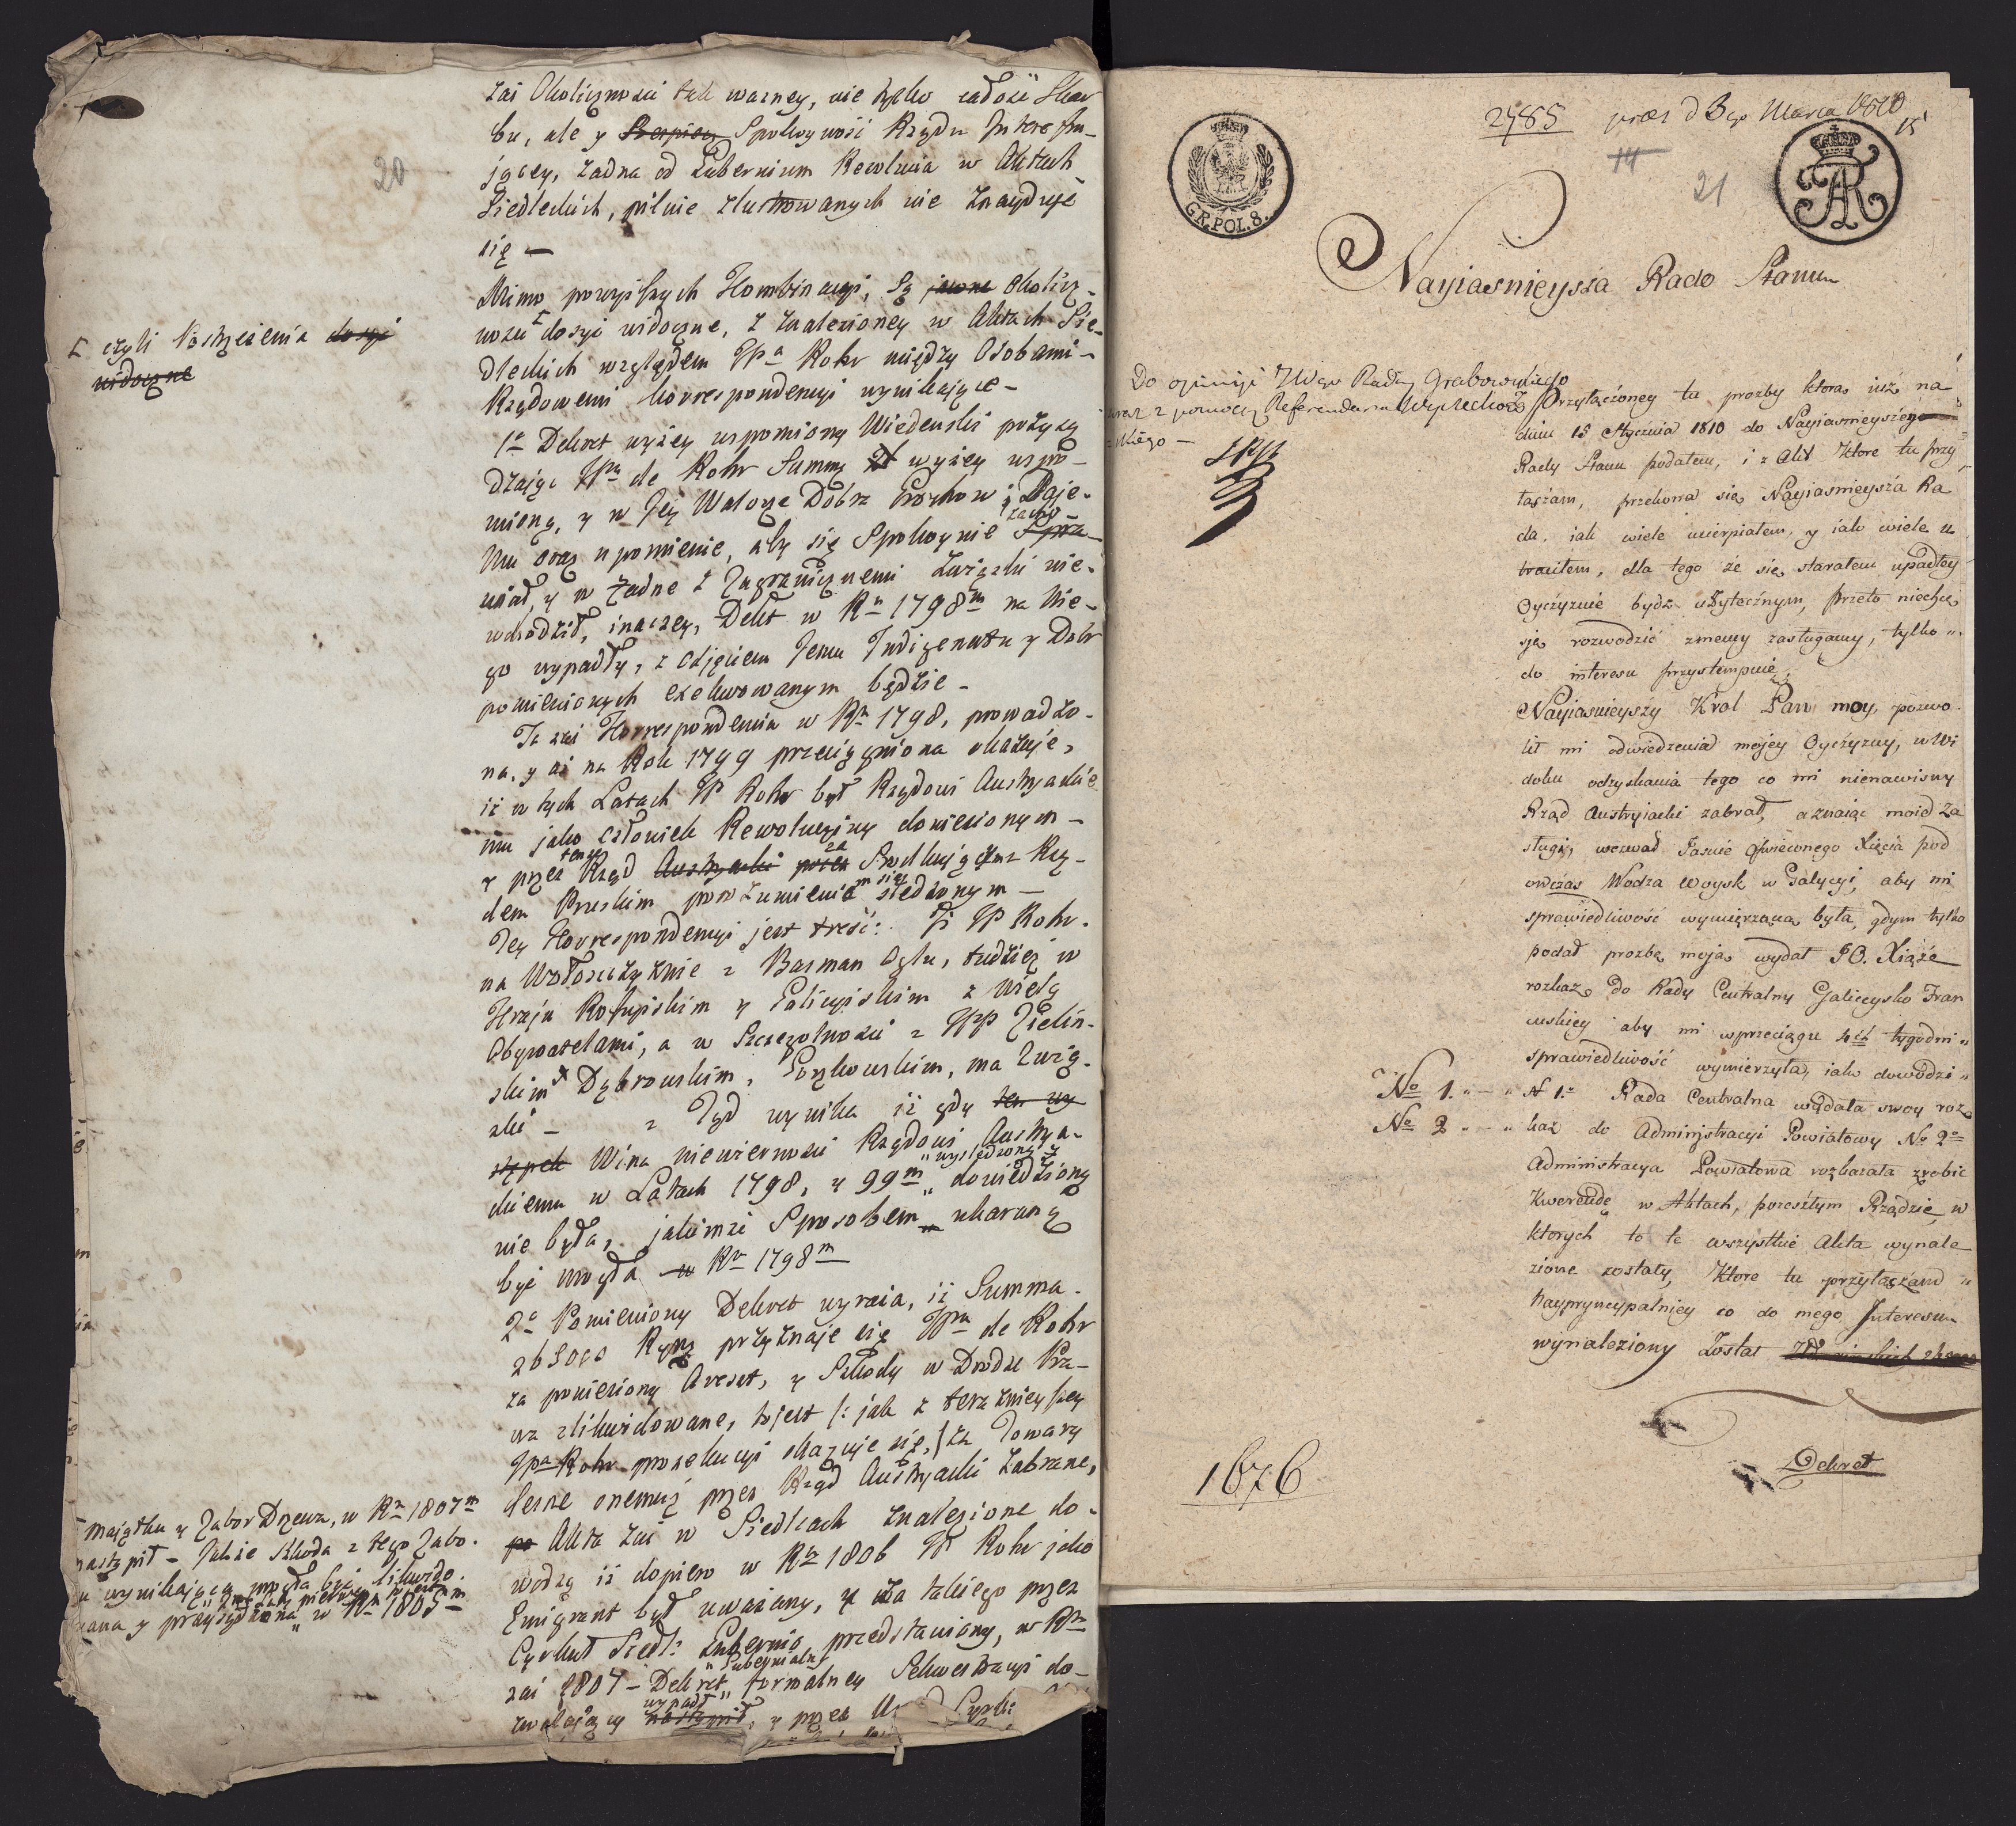 20
zaś Okoliczności tak ważney, nie tylko całość Skar
bu, ale y Spokoyność Rządu Interesu-
jącey, żadna od Gubernium Rezolucia w Aktach
Siedleckich, pilnie zlustrowanych nie znayduje
się —
Mimo powyższych Kombinacyi, Są jawne Okolicz-
ności dosyć widoczne, z znalezioney w Aktach Sie-
dleckich względem JPa Rohr między Osobami-
Rządowemi korrespondencyi wynikające -
czyli Postrzeżenia dosyć
widoczne
1o Dekret wyżey wspomniony Wiedeński przyzy
dzając JPu de Rohr Summę wyżey wspo-
mioną, y w Jey Walorze Dobra daje-
Mu oraz upomienie, aby się Spokoynie zacho-
wał, y w żadne z Zagranicznemi Związki nie-
wchodził, inaczey, Dekt w Ru 1798m na Nie-
go wypadły, z Odjęciem Jemu Indigenatu y Dobr
pomienionych exekwowanym będzie -
Ta zaś Korrespondencia w Ru 1798, prowadzo-
na, y aż na Rok 1799 przeciągniona okazuje,
iż w tych Latach JP Rohr był Rządowi Austryackie
mu jako człowiek Rewolucyiny doniesionym -
y przez tenże Rząd Austryacki przez za Rzą-
dem Pruskim porozumieniem się śledzonym -
Tey Korrespondencyi jest treść: iż JP Rohr-
na Wołoszczyznie z Basman Oglu, tudzież w
Kraju Rossyiskim y Galicyiskim z wielą
Obywatelami, a w Szczegolności z JPP Zieliń-
skim Dąbrowskim, Gorzkowskim, ma Zwią-
zki - z Tąd wynika iż gdy ten wy
stępek Wina niewierności Rządowi Austrya-
ckiemu w Latach 1798, y 99m wyśledzoną y dowiedzioną
nie była, jakimże Sposobem ukaraną
być mogła w Ru 1798m
2o Pomieniony Dekret wyraża, iż Summa-
26300 przyznaje się JPu de Rohr
za poniesiony Areszt, y Szkody w Drodze Pra-
wa zlikwidowane, to jest /: jak z teraznieyszey
JPa Rohr prosekucyi okazuje się,/ za Towary
Leśne onemuż przez Rząd Austryacki zabrane,
Akta zaś w Siedlcach znalezione do-
wodzą iż dopiero w Ru 1806 JP Rohr jako
Emigrant był uważany, y za takiego przez
Cyrkuł Siedl: Gubernio przedstawiony, w Ru
zaś 1807 - Dekret Gubernialny formalney Sekwestracyi do-
zwalający wypadł nastąpił, y przez
majątku y Zabor Drzewa, w Ru 1807m
nastąpił - Jakże Szkoda z tego Zabo-
ru wynikająca mogła być likwido-
wana y przysądzona w Ru 1805m
GR. POL. 8.
2785 præs d 3go Marca 1810
15
14
21
Nayiasnieysza Rado Stanu
Do opinii JWgo Radcy Grabowskiego
wraz z pomocą Referendarza Wyczechow
skiego —
Przyłączoney tu prozby ktorą iuż na
dniu 15 Stycznia 1810 do Nayiasnieyszey
Rady Stanu podałem, i z Akt Ktore tu przy
łączam, przekona się Nayiasnieysza Ra
da, iak wiele ucierpiałem, y iak wiele u
traciłem, dla tego że się starałem upadłey
Oyczyznie bydz użytecznym, przeto niechcę
się rozwodzić z memy zasługamy, tylko
do interesu przystempuię
Nayiasnieyszy Krol Pan moy, pozwo-
lił mi odwiedzenia mojey Oyczyzny, w Wi
doku odzyskania tego co mi nienawisny
Rząd Austryiacki zabrał, a znaiąc moie Za
sługi, wezwał Jasnie Oświeconego Xięcia pod
owczas Wodza Woysk w Galycyi, aby mi
sprawiedliwość wymierzana była, gdym tylko
podał prozbę moją wydał JO. Xiąże
rozkaz do Rady Centralny Galicysko Fran
cuskiey aby mi w przeciągu 4ch tygodni
sprawiedliwość wymierzyła, iako dowodzi
No 1. N 1o Rada Centralna wydała swoy roz
No 2 kaz do Administracyi Powiatowy No 2o
Administracya Powiatowa rozkazała zrobic
Kwerendę w Aktach, poreszłym Rządzie, w
ktorych to te wszystkie Akta wynale
zione zostały, Ktore tu przyłączam
Naypryncypalniey co do mego Interesu
wynaleziony został
Dekret
1676